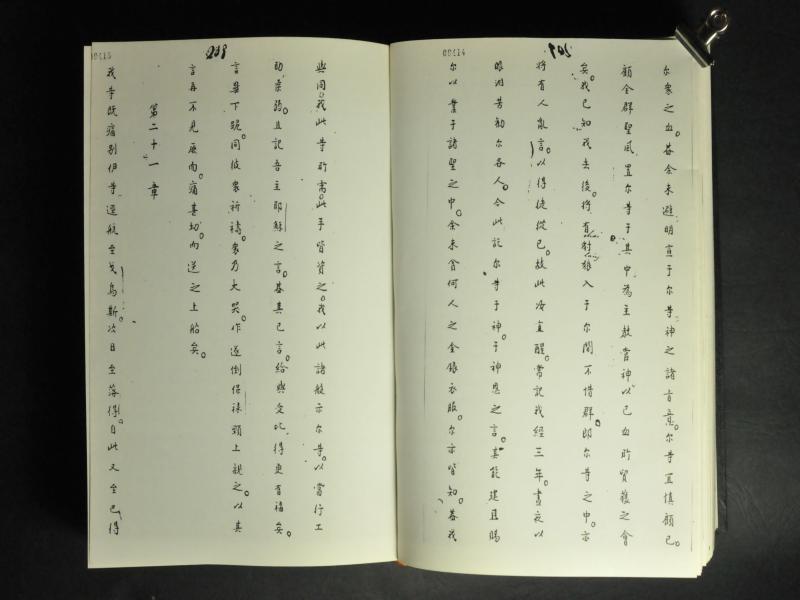 00414
尔衆之血。盖余未避明宣于尔等神之諸旨意。尔等宜慎顧己。
顧全群聖風置尔等于其中為主教嘗神以己血所買獲之會
矣。我已知我去後。將有豺狼入于尔間不惜群。即尔等之中。亦
將有人亂言。以得徒從己。故此冷直醒。嘗記我經三年。晝夜以
眼泪苦勸尔各人。今此託尔等于神。于神恩之言。其能建且賜
尔以業于諸聖之中。余未會何人之金銀衣服。尔亦皆知。盖我
00415
與同我此等所需。此手皆資之。我以此諸般示尔等。以當行工
助柔弱。且記吾主耶穌之言。盖其已言。給與受比。得更有福矣。
言畢下跪。同彼衆祈禱。衆乃大哭。作遂倒保祿頭上親之。以其
言再不見厥面。痛甚切。而送之上船矣。
第二十一章
我等既痛别伊等。運航至戈烏斯。次日至落得。自此又至巴得